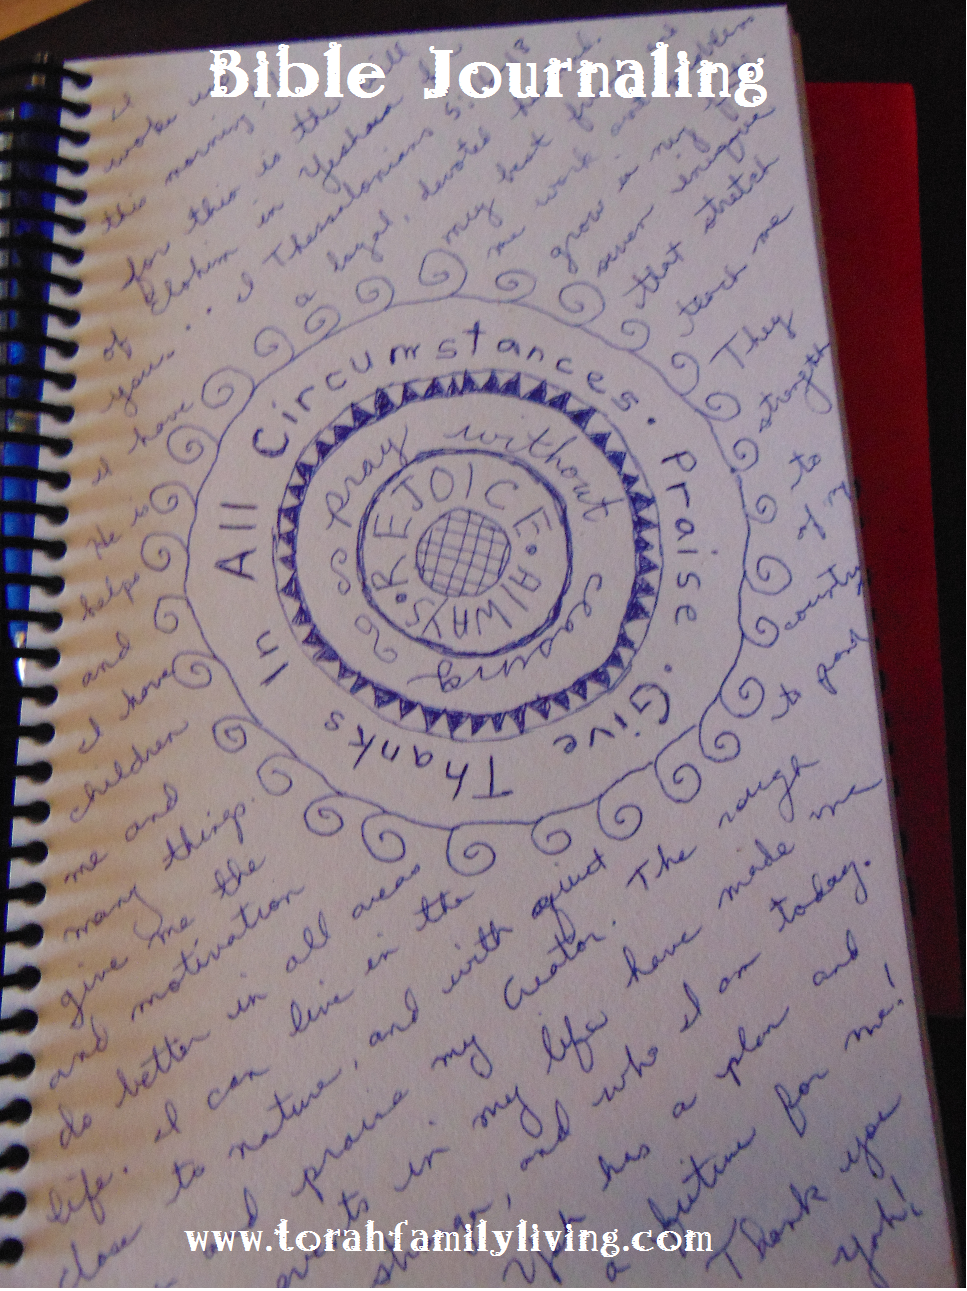 Bible Journaling
woke
this morning
for this is the will
of Elohim in Yeshua
you... I Thessalonians 5:18
I have a loyal, devoted
He is my best friend
helps me work and problem
and grow in my
I have seven unique
children that stretch
me and teach me
many things. They
give me the strength
and motivation to
do better in all areas of my
life. I can live in the country
close to nature, and with quiet to pray
and praise my Creator. The rough
events in my life have made me
stronger, and who I am today.
Yah has a plan and
a future for me!
Thank you
Yah!
REJOICE • AlWAYS •
pray without ceasing
Give Thanks In All Circumstances. Praise.
www.torahfamilyliving.com